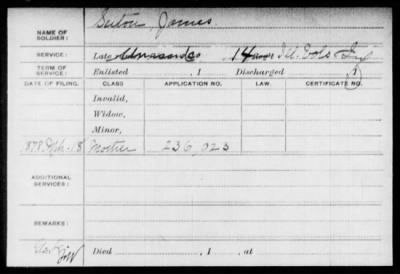 NAME OF SOLDIER: James.
SERVICE: Late 14 Ill. Vols Inf
TERM OF SERVICE: Enlisted , 1 Discharged , 1
DATE OF FILING. CLASS APPLICATION NO. LAW. CERTIFICATE NO.
Invalid,
Widow,
Minor,
1878 18 Mother 236,023
ADDITIONAL SERVICES:
REMARKS:
Died , 1 , at